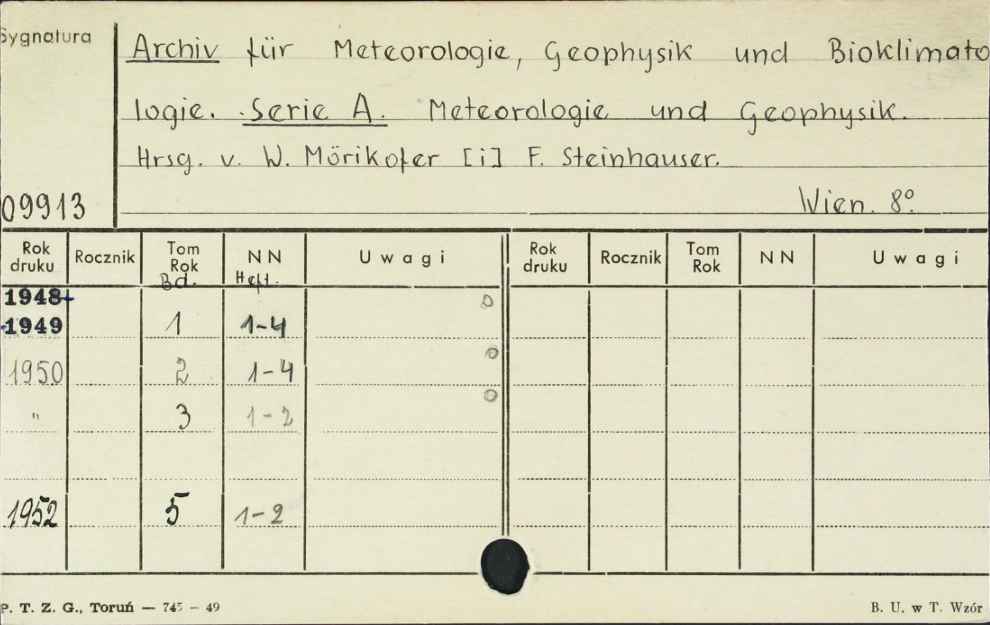 Sygnatura
Archiv für Meteorologie, Geophysik und Bioklimato
logie. Serie A. Meteorologie und Geophysik.
Hrsg. v. W. Mörikofer [i] F. Steinhauser.
09913 Wien. 8°.
Rok druku Rocznik Tom Rok NN Uwagi Rok druku Rocznik Tom Rok NN Uwagi
Bd. Heft.
1948-
-1949 1 1-4
1950 2 1-4
" 3 1-2
1952 5 1-2
P. T. Z. G., Toruń — 745 — 49 B. U. w T. Wzór